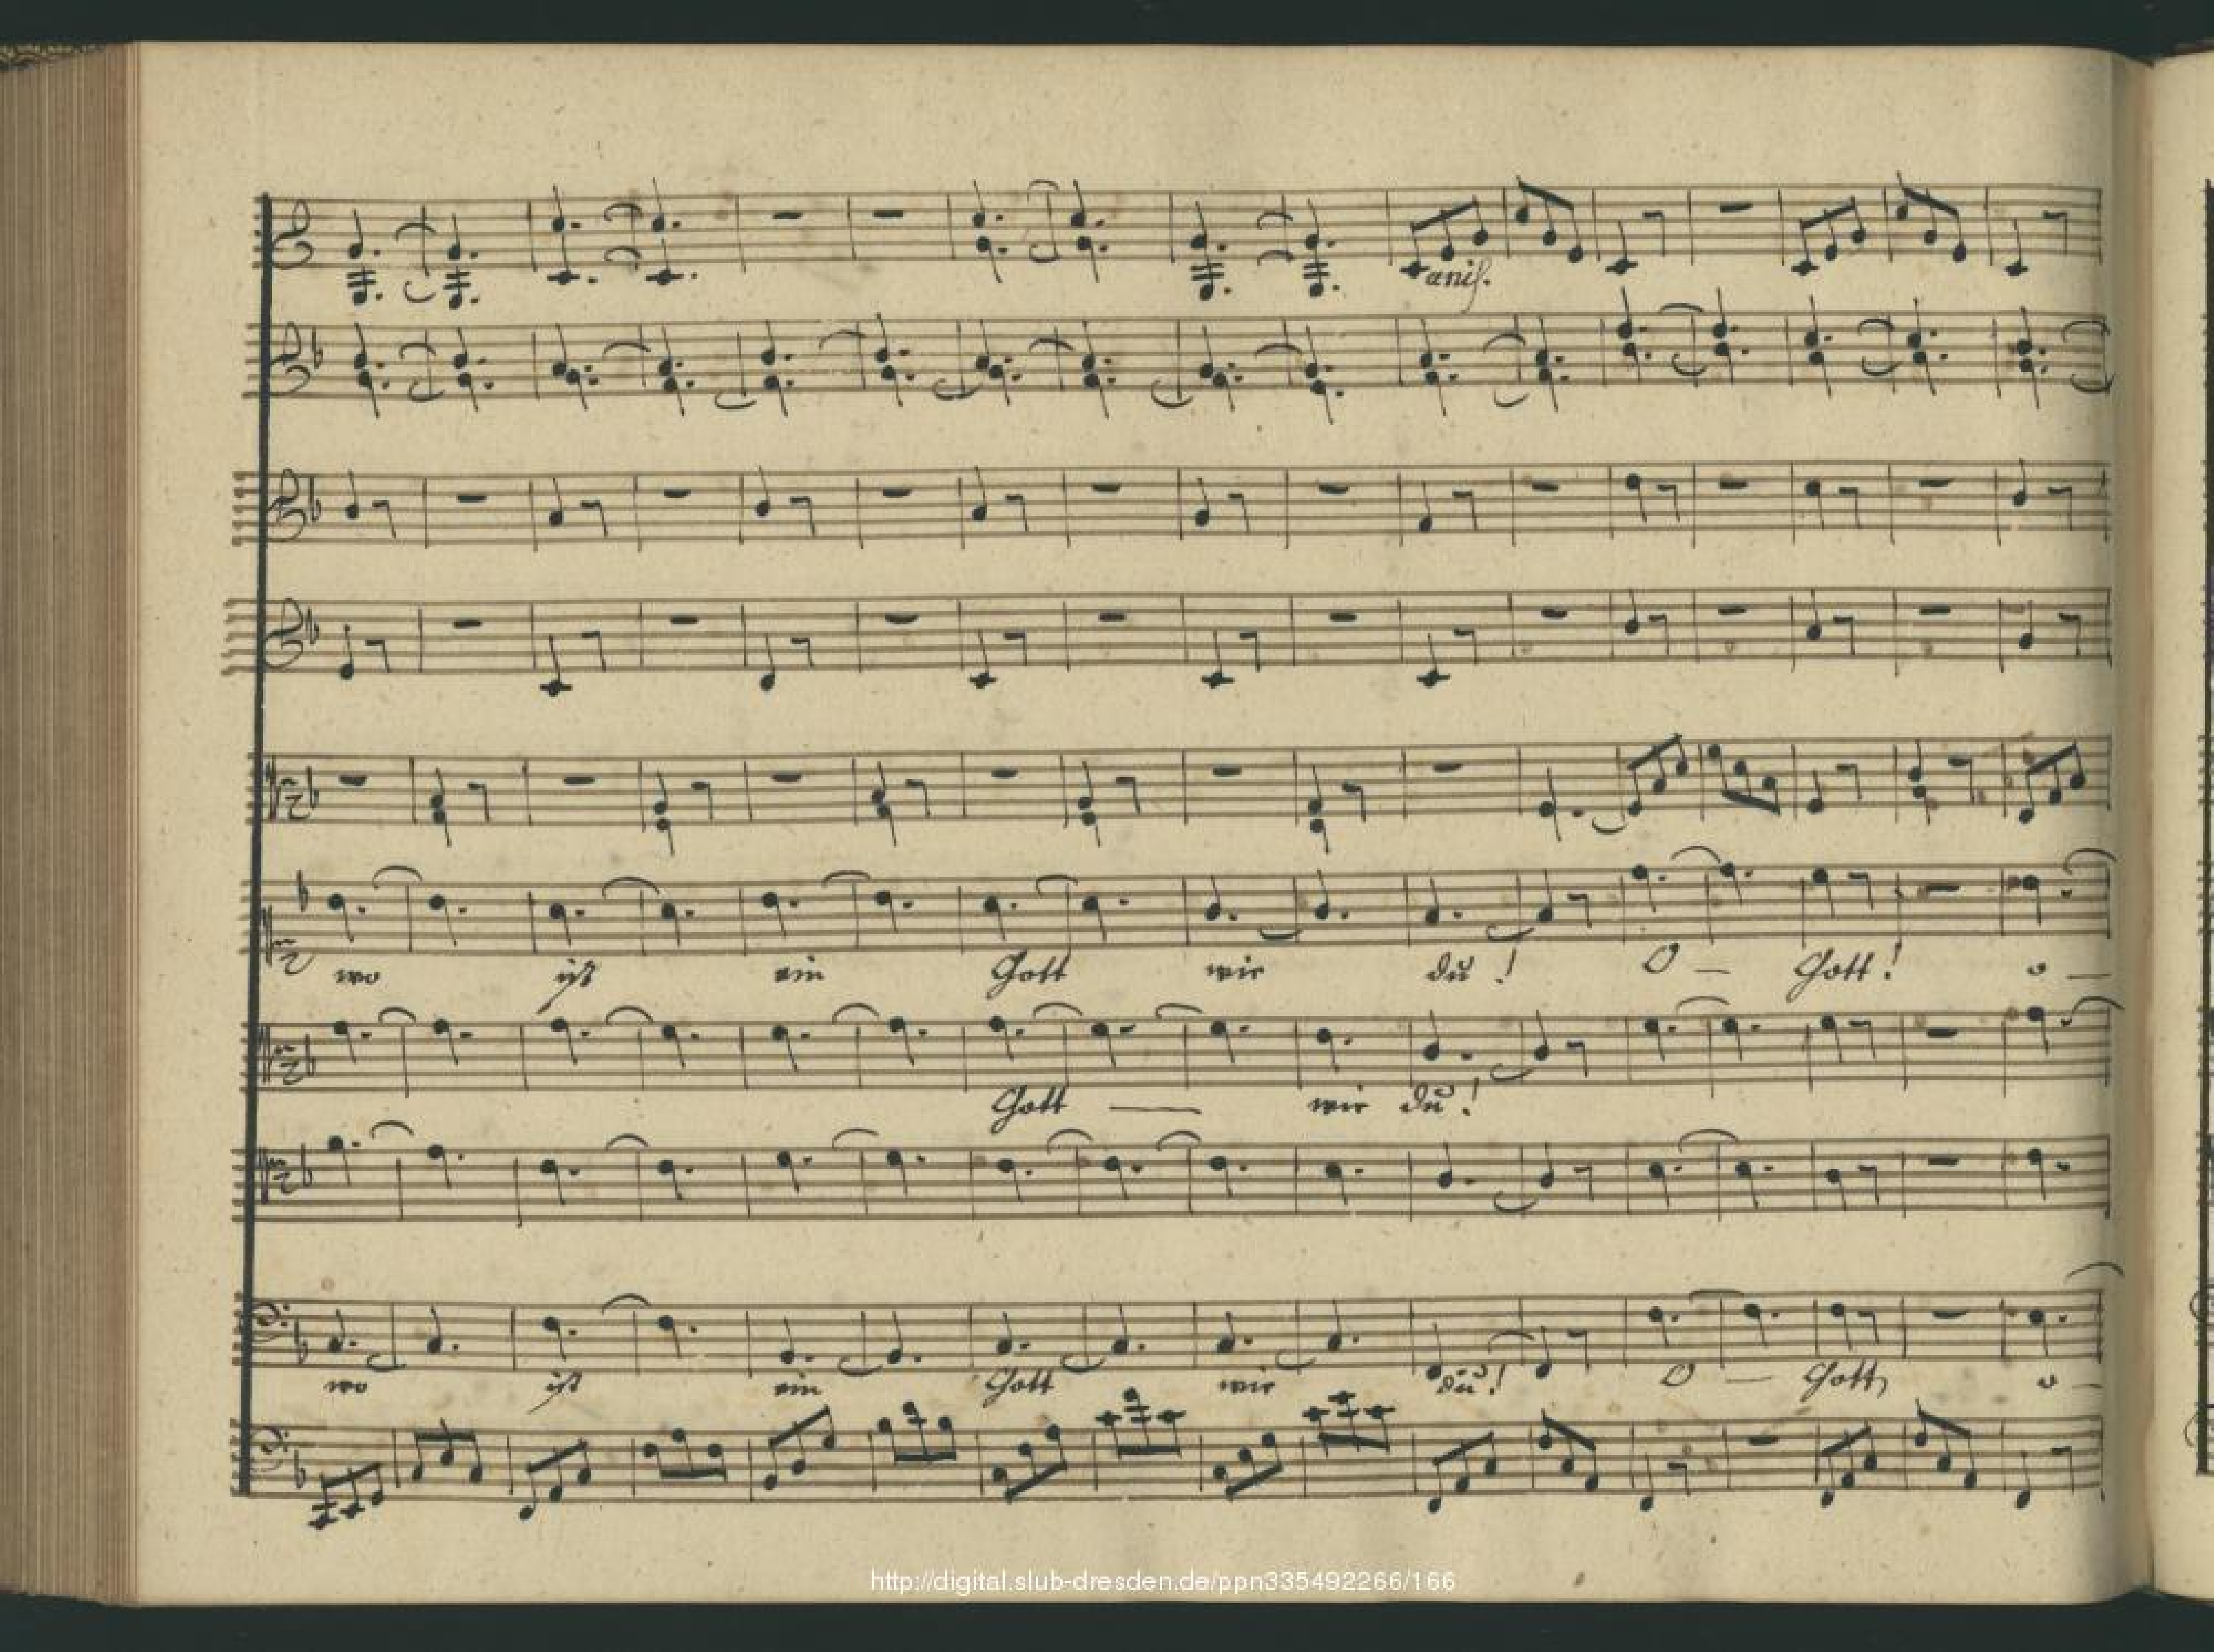 unis.
wo ist ein Gott wie du! O — Gott! o —
Gott — wie du!
wo ist ein Gott wie du! O — Gott, o —
http://digital.slub-dresden.de/ppn335492266/166